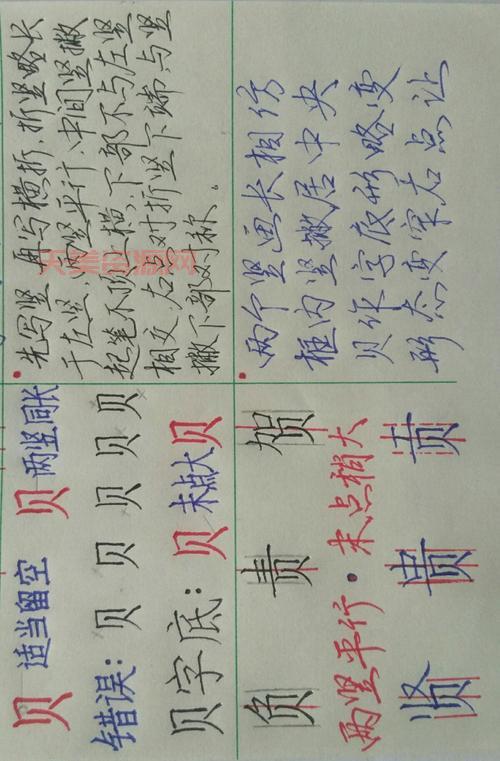 贝 适当留空 贝 两竖同长
错误：贝 贝 贝 贝 贝
贝字底：贝 末点大 贝
先写竖，再写横折，折竖略长
于左竖，两竖平行，中间竖撇
起笔不顶横，下部不与左竖
相交，右点对折竖下端，与竖
撇下部对称。
负 责 贺
两竖平行·末点稍大
贤 贵 贡
两个竖画长相仿
框内竖撇居中央
贝作字底形略变
形态变窄右点让
天美资源网